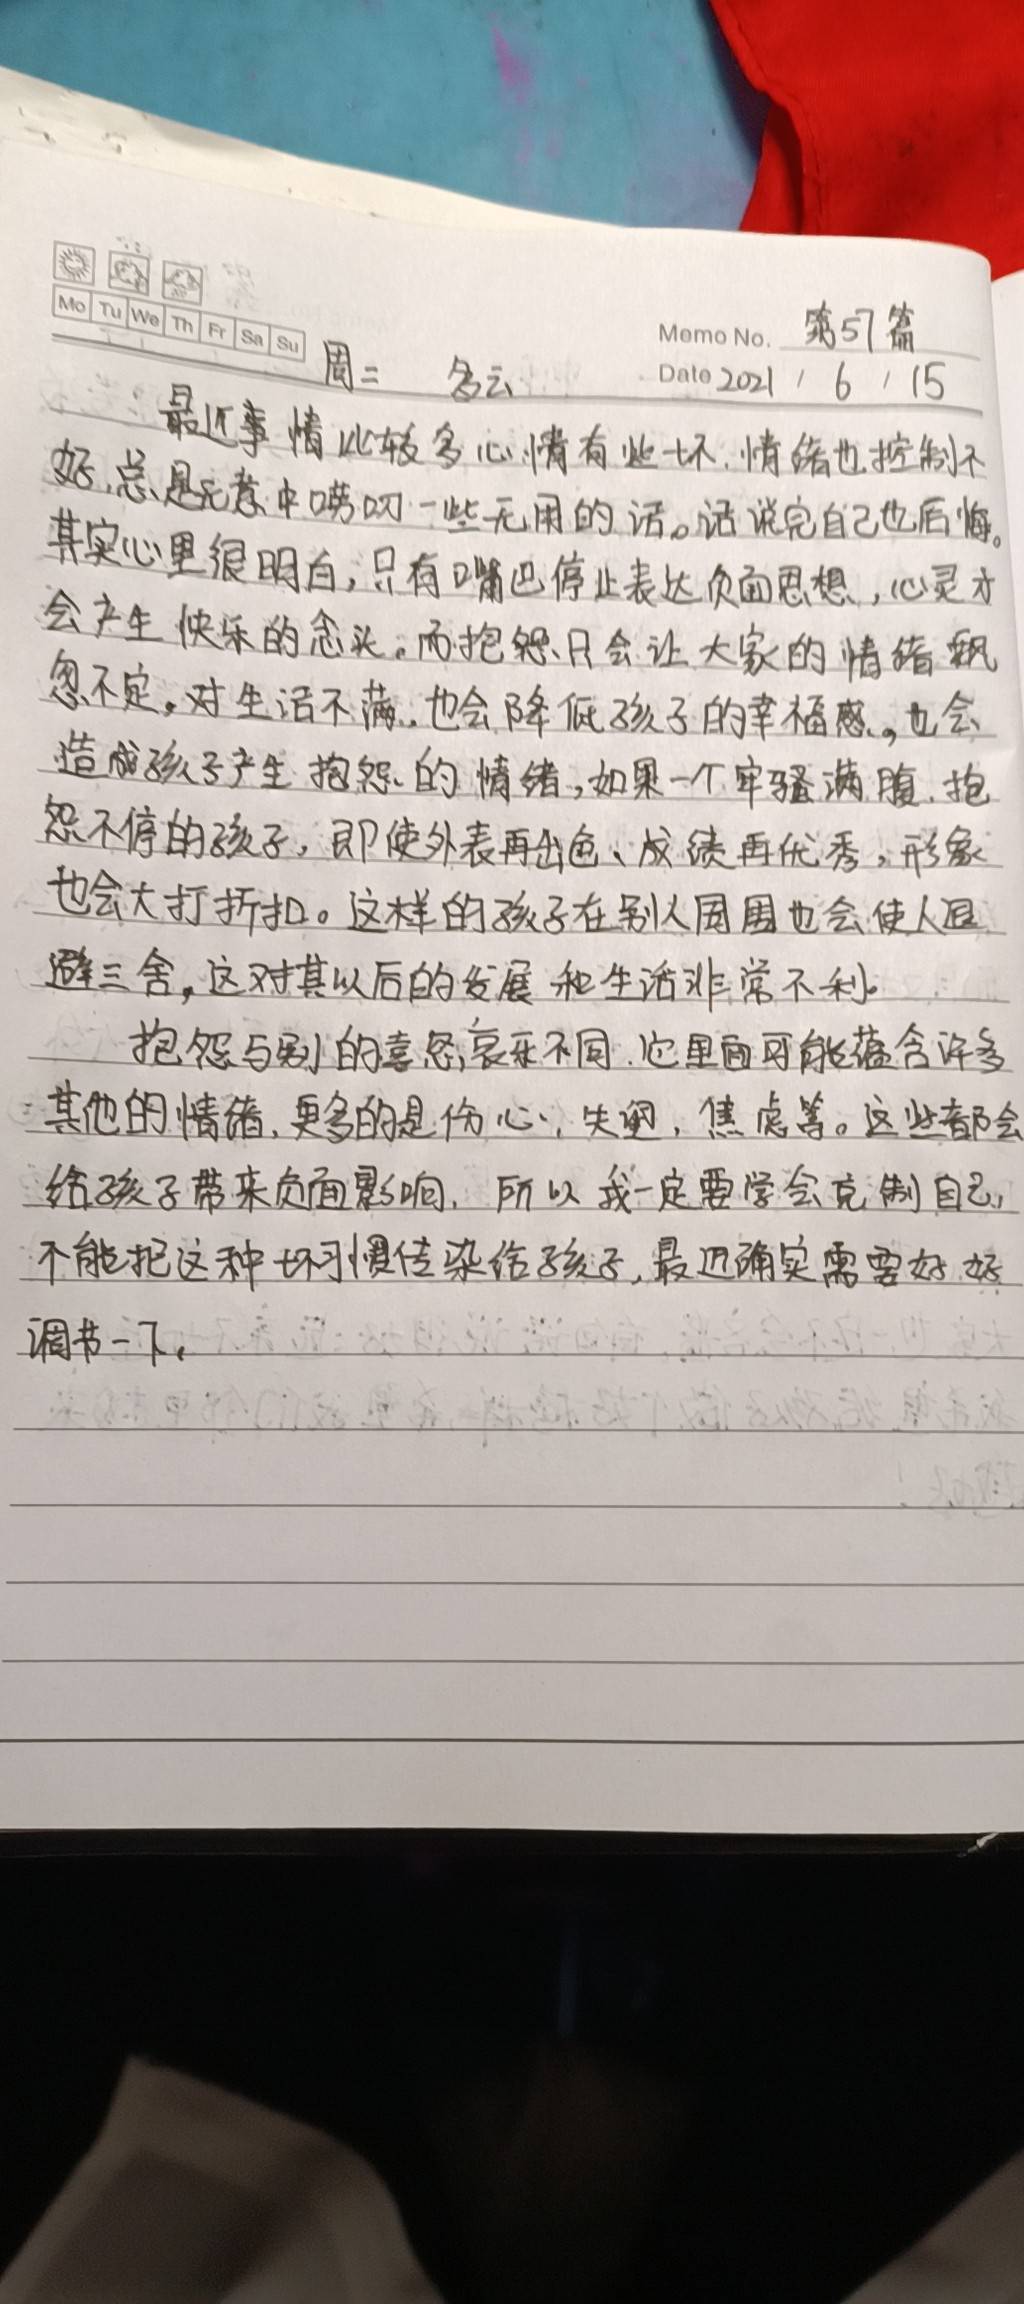 Mo Tu We Th Fr Sa Su
Memo No. 第57篇
周二 多云 Date 2021 / 6 / 15
最近事情比较多心情有些坏,情绪也控制不
好,总是无意中唠叨一些无用的话。话说完自己也后悔。
其实心里很明白,只有嘴巴停止表达负面思想,心灵才
会产生快乐的念头。而抱怨只会让大家的情绪飘
忽不定。对生活不满,也会降低孩子的幸福感,也会
造成孩子产生抱怨的情绪,如果一个牢骚满腹,抱
怨不停的孩子,即使外表再出色、成绩再优秀,形象
也会大打折扣。这样的孩子在别人周围也会使人退
避三舍,这对其以后的发展和生活非常不利。
抱怨与别的喜怒哀乐不同,它里面可能蕴含许多
其他的情绪,更多的是伤心,失望,焦虑等。这些都会
给孩子带来负面影响,所以我一定要学会克制自己,
不能把这种坏习惯传染给孩子,最近确实需要好好
调节一下。